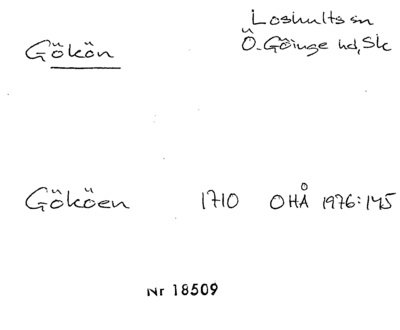 Gökön
Loshults sn
Ö. Göinge hd, Sk
Gököen 1710 OHÅ 1976:145
Nr 18509